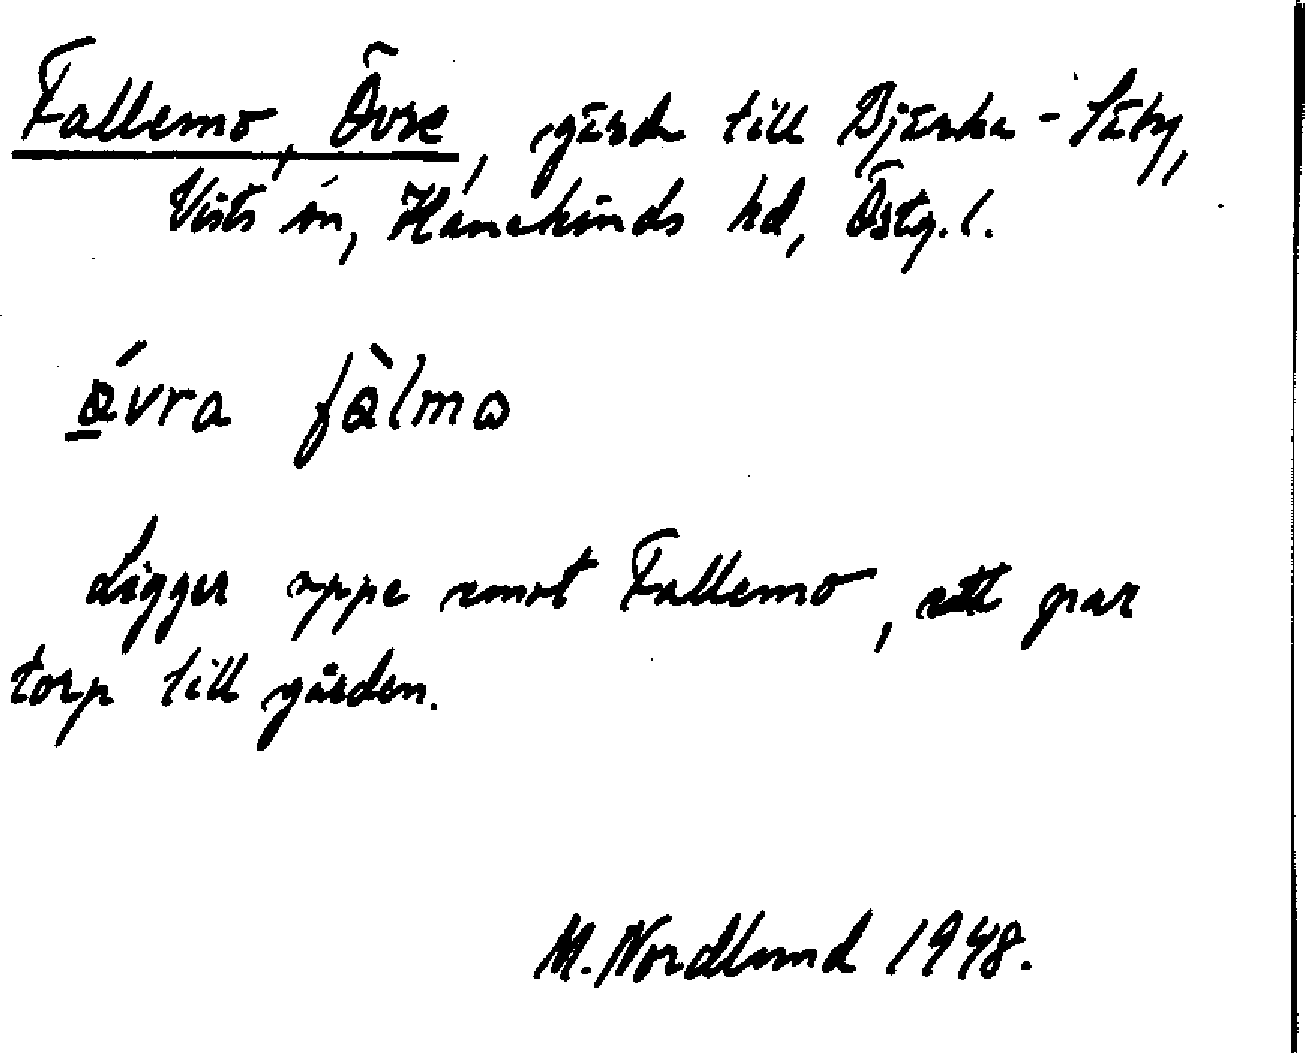 Fallemo, Övre, gård till Bjärka-Säby,
Vists sn, Hanekinds hd, Östg. l.
ávra fàlmo
Ligger uppe emot Fallemo, ett par
torp till gården.
M. Nordlund 1948.